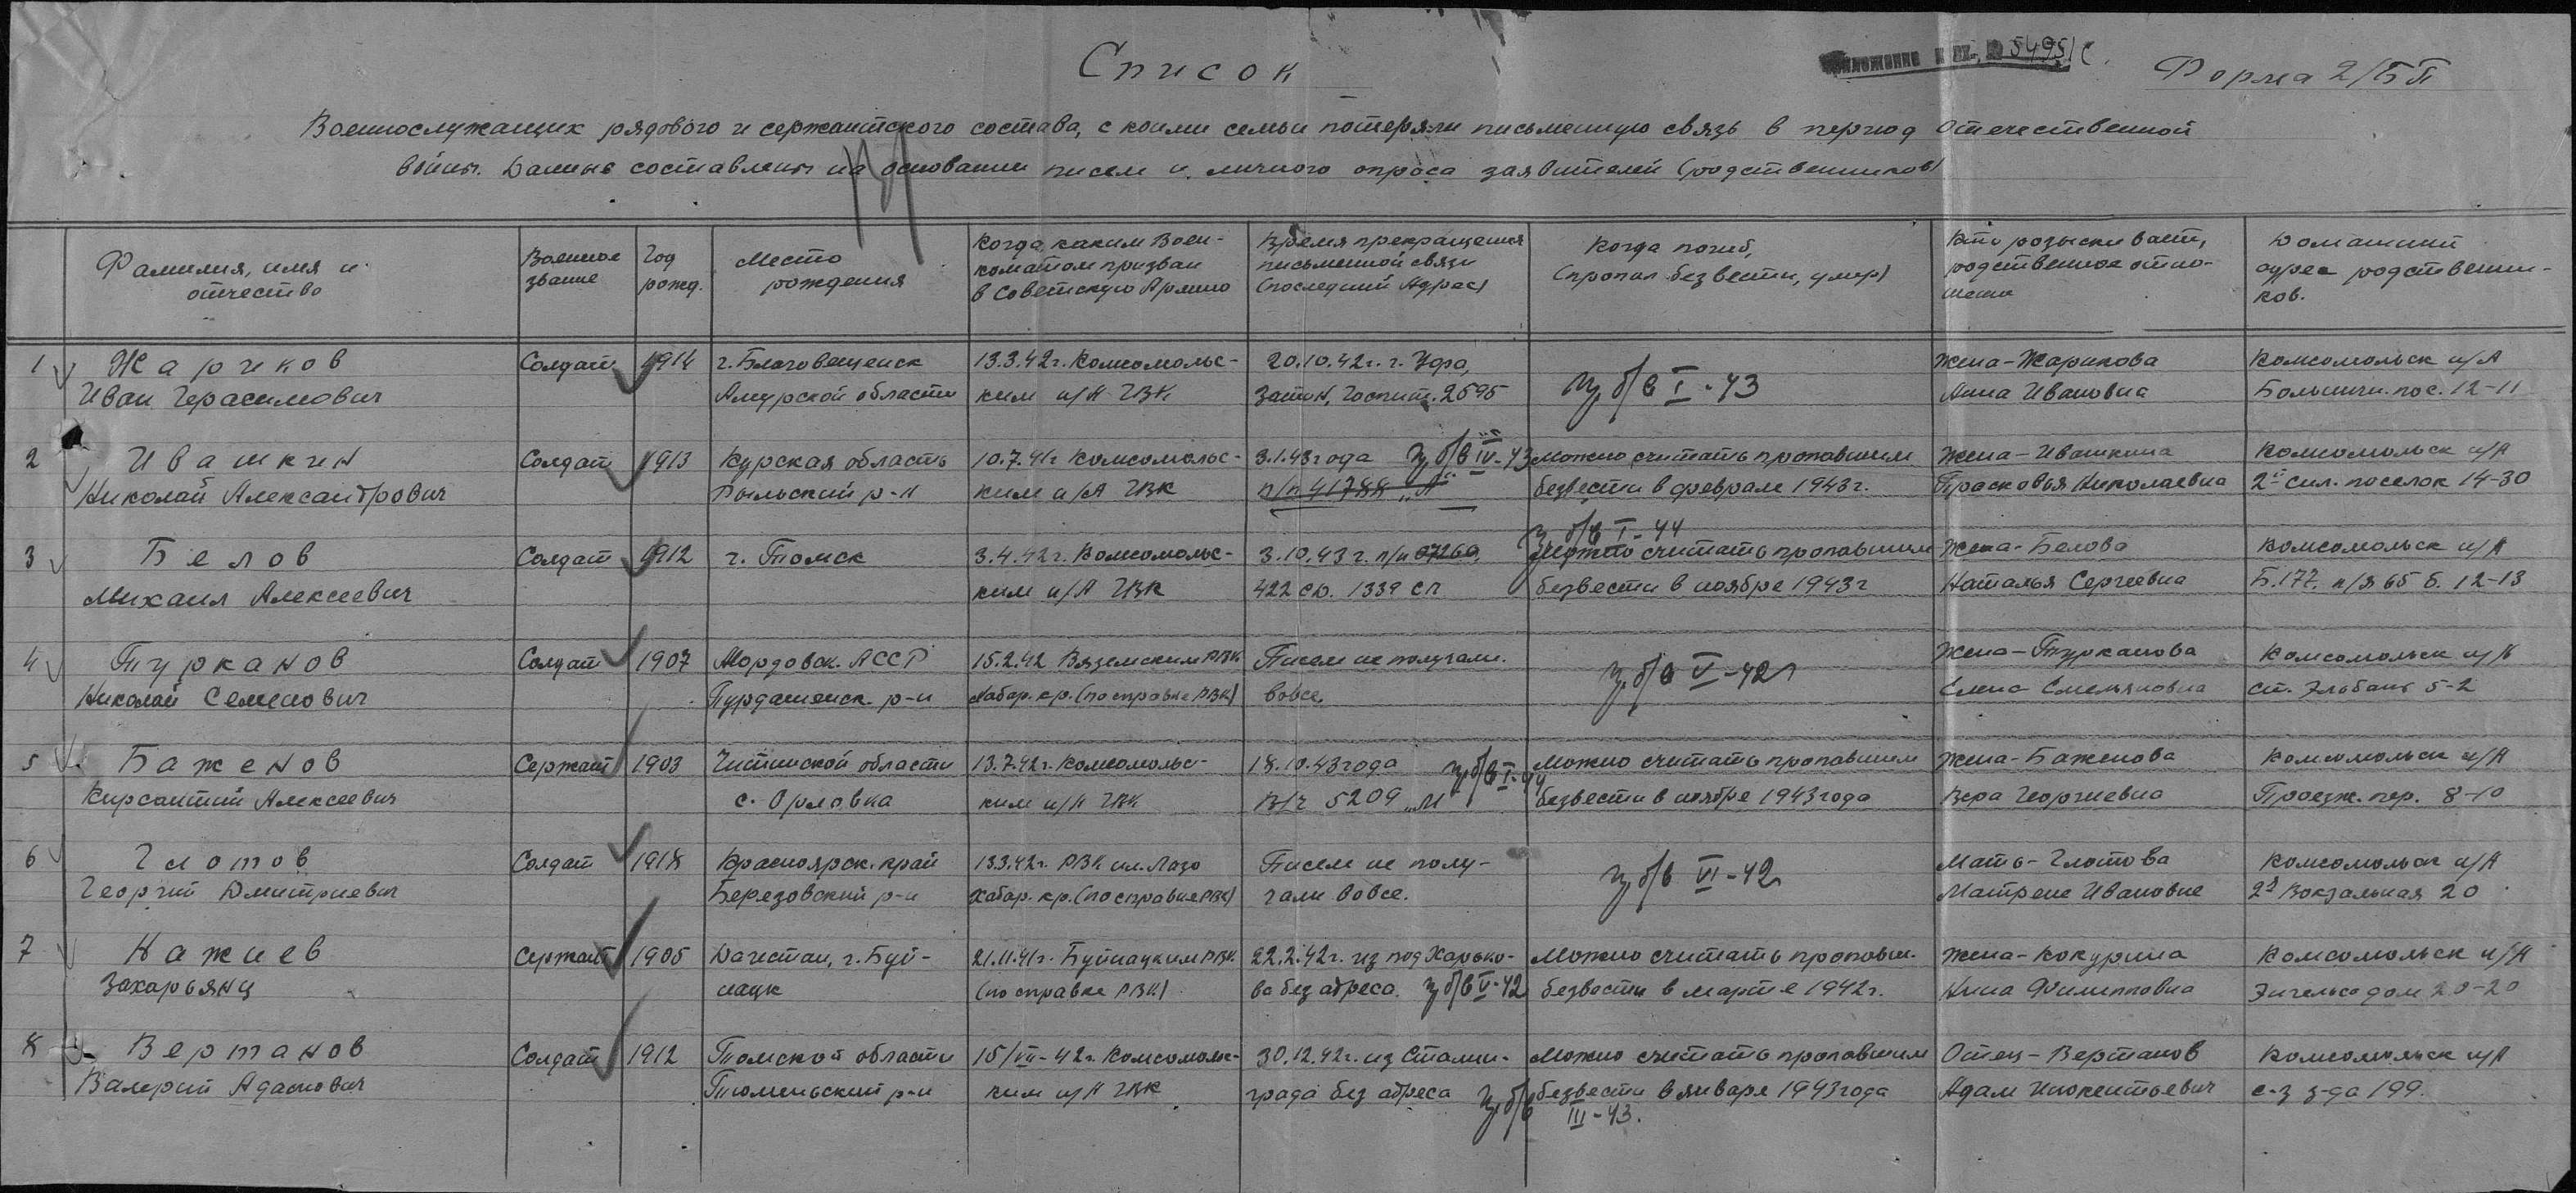 Список
5495/с.
Форма 2/БП
Военнослужащих рядового и сержантского состава, с коими семьи потеряли письменную связь в период отечественной
войны. Данные составлены на основании писем и личного опроса заявителей (родственников)
Фамилия, имя и отчество
Военное звание
Год рожд.
Место рождения
Когда, каким Военкоматом призван в Советскую Армию
Время прекращения письменной связи (последний Адрес)
Когда погиб, (пропал без вести, умер)
Кто разыскивает, родственное отношение
Домашний адрес родственников.
1 Жариков Солдат 1914 г. Благовещенск 13.3.42г. Комсомольс- 20.10.42г. г. Уфа, Жена-Жарикова Комсомольск н/А
Иван Герасимович Амурской области ким н/А ГВК Госпит. 2595 п, б/в I-43 Анна Ивановна Больничн. пос. 12-11
2 Ивашкин Солдат 1913 Курская область 10.7.41г Комсомольс- 3.1.43 года б/в IV-43 Можно считать пропавшим Жена-Ивашкина Комсомольск н/А
Николай Александрович Рыльский р-н ким н/А ГВК п/п 41788 „А" безвести в феврале 1943г. Прасковья Николаевна 2й сил. поселок 14-30
б/в I-44
3 Белов Солдат 1912 г. Томск 3.4.42г. Комсомольс- 3.10.43г. п/п 07260, Можно считать пропавшим Жена-Белова Комсомольск н/А
Михаил Алексеевич ким н/А ГВК 422 сд. 1339 сп безвести в ноябре 1943г Наталья Сергеевна Б.177. п/я 65 б. 12-13
4 Турканов Солдат 1907 Мордовск. АССР 15.2.42 Вяземским РВК Писем не получали. Жена-Турканова Комсомольск н/А
Николай Семенович Пурдашенск. р-н Хабар. кр. (по справке РВК) вовсе. б/в V-42г Елена Емельяновна ст. Эльбань 5-2
5 Баженов Сержант 1903 Читинской области 13.7.42г. Комсомольс- 18.10.43 года б/в I-44 Можно считать пропавшим Жена-Баженова Комсомольск н/А
Кирсантий Алексеевич с. Орловка ким н/А ГВК В/ч 5209 „М" безвести в ноябре 1943 года Вера Георгиевна Проезж. пер. 8-10
6 Глотов Солдат 1918 Красноярск. край 13.3.42г. РВК им. Лазо Писем не полу- Мать-Глотова Комсомольск н/А
Георгий Дмитриевич Березовский р-н Хабар. кр. (по справке РВК) чали вовсе. б/в VI-42г Матрене Ивановне 2я Вокзальная 20
7 Нажиев Сержант 1905 Дагестан, г. Буй- 21.11.41г. Буйнацким РВК 22.2.42г. из под Харько- Можно считать пропавш. Жена-Кокурина Комсомольск н/А
Захарьянц нацк (по справке РВК) ва без адреса. б/в V-42 безвести в марте 1942г. Нина Филипповна Энгельса дом 20-20
8 Вертанов Солдат 1912 Томской области 15/VII-42г. Комсомольс- 30.12.42г. из Сталин- Можно считать пропавшим Отец-Вертанов Комсомольск н/А
Валерий Адамович Тюменьский р-н ким н/А ГВК града без адреса б/в безвести в январе 1943 года Адам Инокентьевич с-з з-да 199.
III-43.